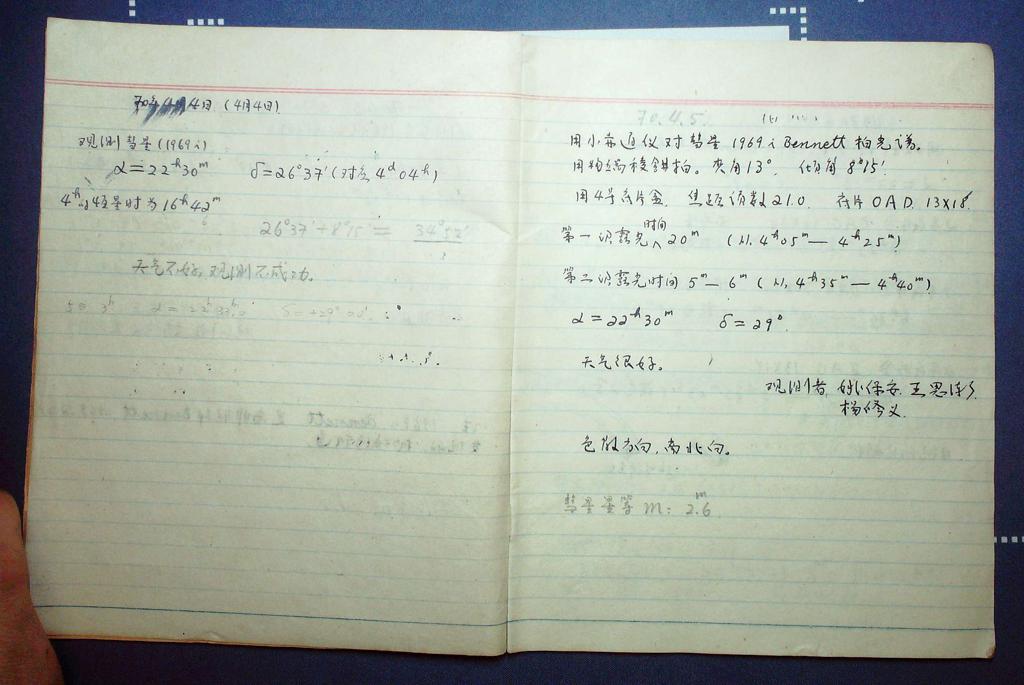 4日 (4月4日)
观测彗星 (1969 i)
α=22ʰ30ᵐ δ=26°37′ (对应 4ᵈ04ʰ)
4ʰ的恒星时为 16ʰ42ᵐ
26°37′+8°15′ = 34°52′
天气不好,观测不成功。
70.4.5.
用小赤道仪对彗星 1969 i Bennett 拍光谱。
用物端棱镜拍。夹角13° 倾角 8°15′.
用4号底片盒 焦距读数21.0 底片 OAD 13×18
第一次露光时间 20ᵐ (从 4ʰ05ᵐ — 4ʰ25ᵐ)
第二次露光时间 5ᵐ — 6ᵐ (从 4ʰ35ᵐ — 4ʰ40ᵐ)
α=22ʰ30ᵐ δ=29°.
天气很好。
观测者 姚保安 王思
杨修义
色散方向,南北向。
彗星星等 m: 2.ᵐ6